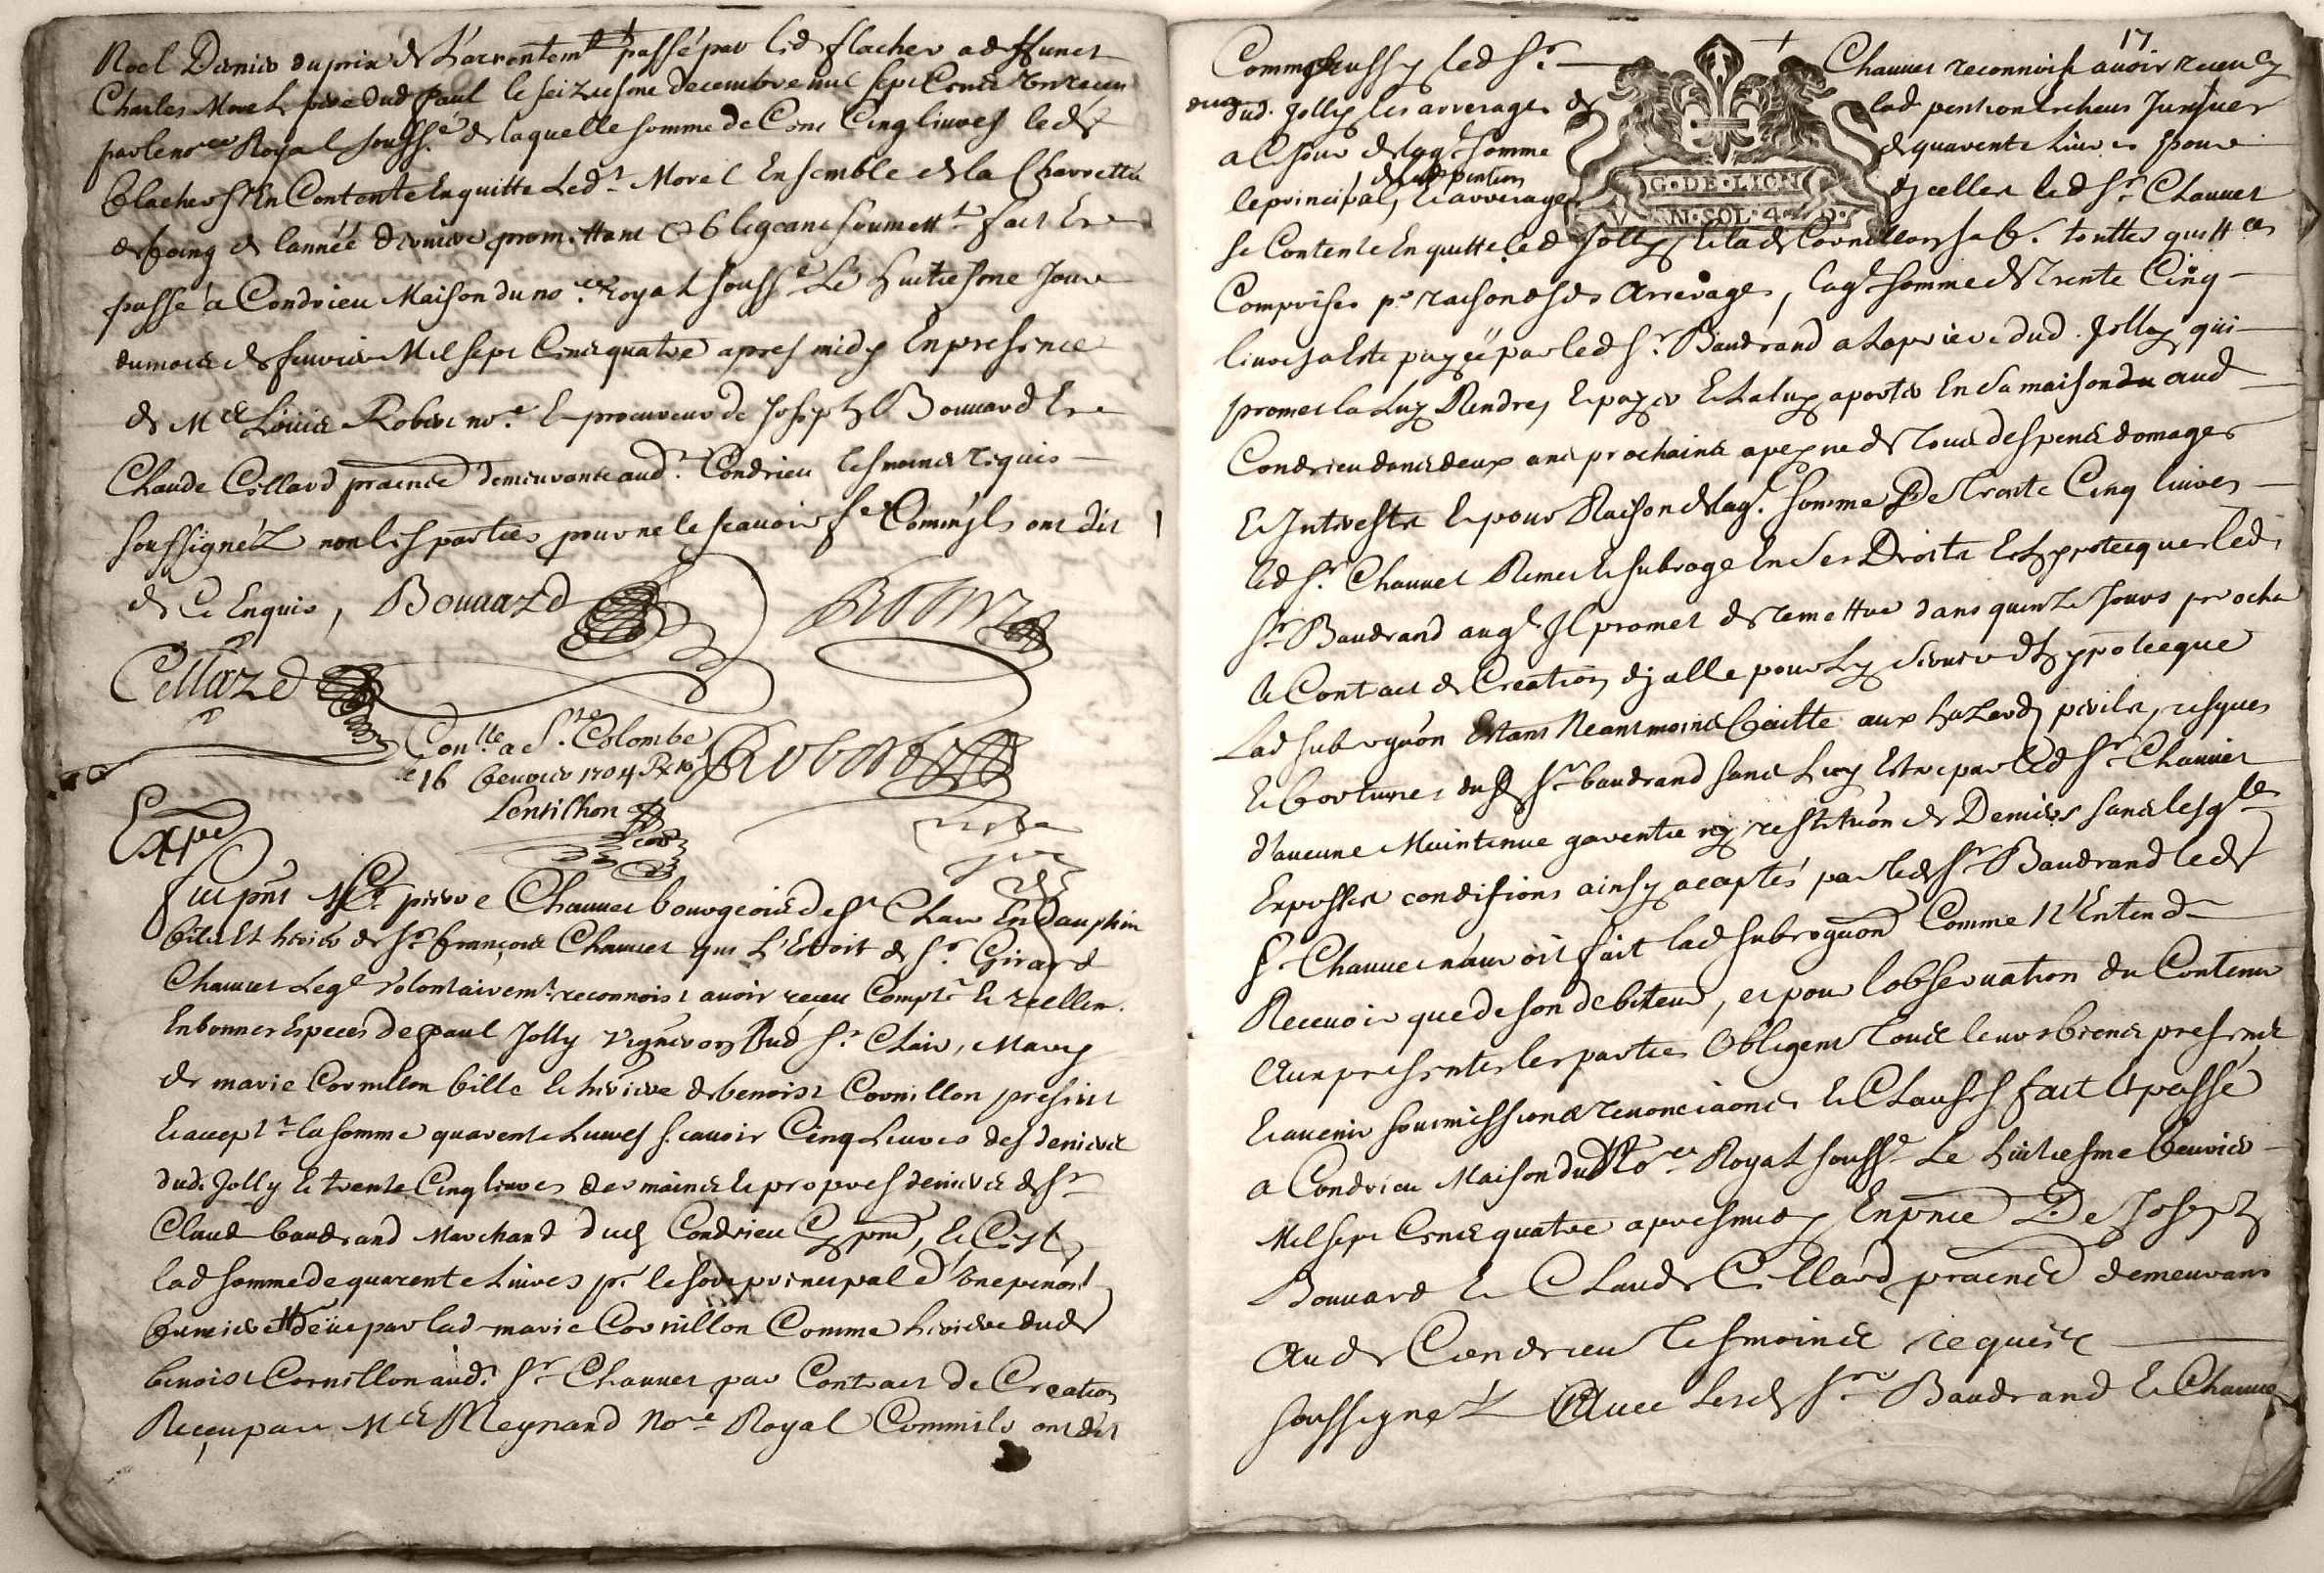 Noel Dernier du prix de L'arrentemt passé par led flacher a deffunct
Charles Morel pere dud paul le seiziesme decembre mil sept Cents un receu
par le nore Royal soussé de laquelle somme de Cent Cinq livres led
flacher se Contente En quitte Ledt Morel Ensemble de la Charrettée
de foing de lannée derniere promettant Obligeant soumettt fait Et
passé a Condrieu Maison du nore royal soussé Le huitiesme Jour
du mois de feuvrier Mil sept Cents quatre apres midy En presence
de Me Louis Robin nore & procureur de Joseph Bouuard Et
Claude Cellard pratcns demeurants audt Condrieu tesmoins requis
soussignéz non les parties pour ne le scauoir fe Comm'ils ont dit
de Ce Enquis, Bouuard
Cellard
Conlle a Ste Colombe
le 16 feuvrier 1704
Lentilhon
Expé
fut pnt Sr pierre Chauuet bourgeois de St Clair En Dauphin
fils Et heritier de Sr françois Chauuet qui L'Estoit de Sr Girard
Chauuet Leql Volontairemt reconnoist auoir receu Comptt & reellem.
En bonnes Especes de paul Jolly Vigneron Dud St Clair, Mary
de marie Cornillon fille & heritiere de benoist Cornillon present
& acceptt la somme quarente Liures scauoir Cinq Liures des deniers
dud. Jolly & trente Cinq liures des mains & propres deniers de Sr
Claude baudrand Marchand dud Condrieu Cy pnt, & C'est
lad somme de quarente Liures pr le sort principal d'Une penon
fonciere deüe par lad marie Cornillon Comme heritiere dud
benoist Cornillon audt Sr Chauuet par Contract de Creation
Receu par Me Meynard Nore Royal Commils ont dit
17
Comme aussy led Sr Chauuet reconnoist auoir receu
dud. Jolly les arrerages de lad pention Escheus Jusques
a Ce Jour de laqle somme de quarente Liures pour
de lad pention
le principal, & arrerages d'jcelles led Sr Chauuet
G·DE·LION
V N·SOL·4·D·
se Contente En quitte led Jolly & lad Cornillon sa fe. touttes quittces
Comprises pr raison desds Arrerages, laqle somme de Trente Cinq
liures a Esté payéé par led Sr Baudrand a La priere dud. Jolly qui
promet la Luy Rendre, & payer & La luy aporter En sa maison aud
Condrieu dans deux ans prochains a peyne de Tous despens domages
& Interests & pour Raison de laqe somme De Trente Cinq liures
led Sr Chauuet Remet & subroge En ses Droits Et hypotecques led
Sr Baudrand auql Il promet de remettre dans quinze Jours procha
le Contact de Creation d'jcelle pour Luy seruir d'hyppotecque
Lad subroguon Estant Neantmoins faitte aux hazards perils, risques
& fortunes dud Sr baudrand sans Luy Estre par led Sr Chauuet
d'aucune Maintenue garentie ny restituon de Deniers sans lesqles
Expresses conditions ainsy aceptés par led Sr Baudrand led
Sr Chauuet n'auroit fait lad subroguon Comme N'Entendt
Receuoir que de son debiteur, et pour lobseruation du Contenu
Aux presentes les parties Obligent Tous leurs biens presents
& auenir soumissions renonciaons & Clauses fait & passé
a Condrieu Maison du Nore Royal soussé Le huitiesme feuvrier
Mil sept Cents quatre apres midy En pnce De Joseph
Bouuard & Claude Cellard pratcns demeurans
Aud Condrieu Tesmoins requis
soussignez Auec Lesd Srs Baudrand & Chauuet